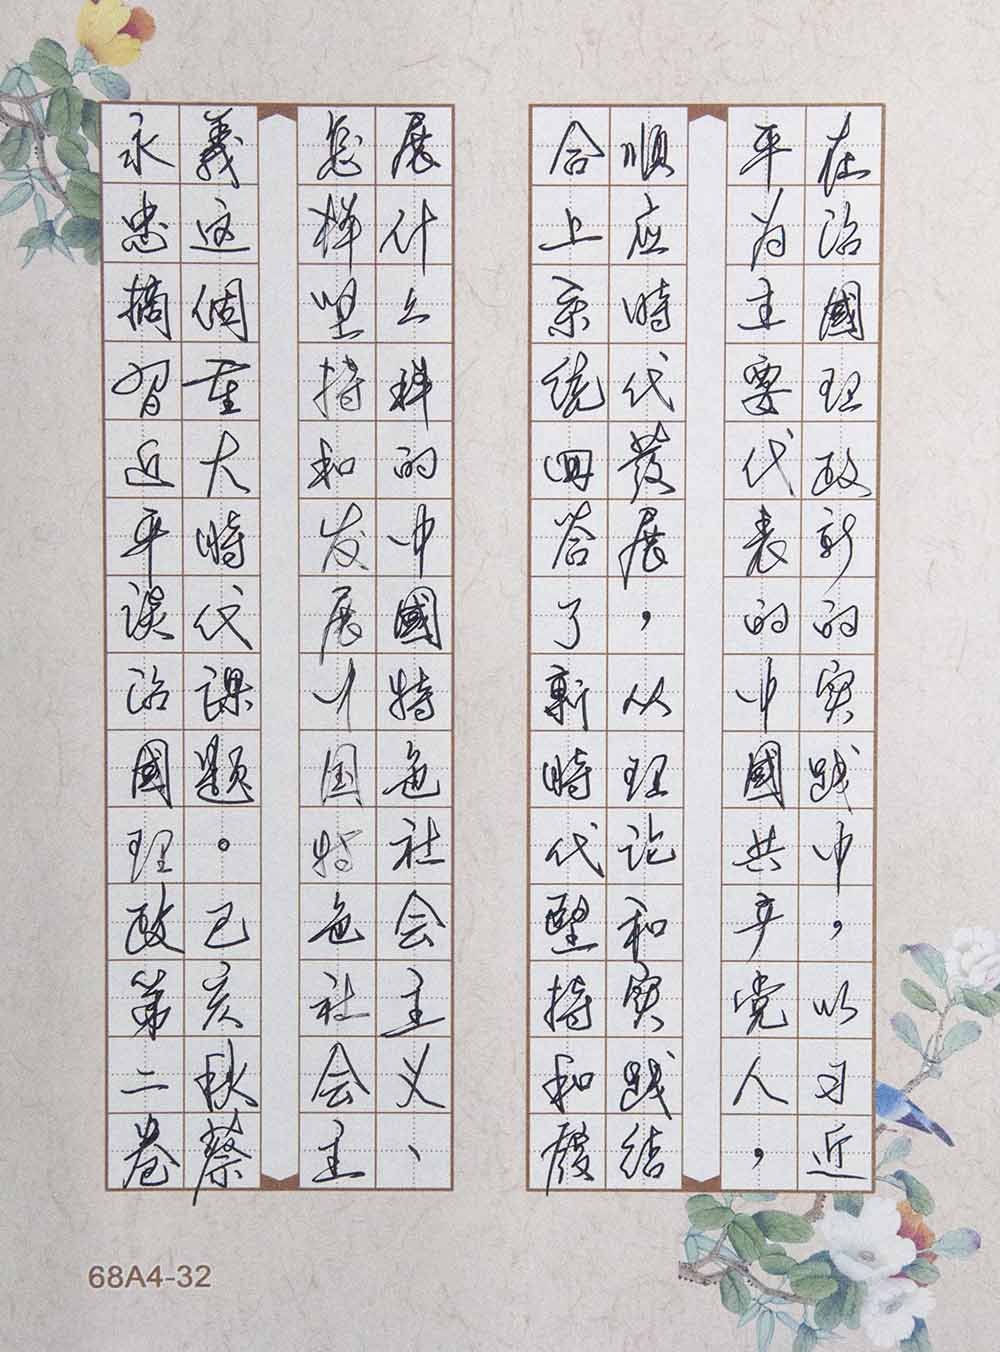 在治國理政新的实践中，以习近
平为主要代表的中國共产党人，
順应時代發展，从理论和实践结
合上系统回答了新時代堅持和發
展什么样的中國特色社会主义、
怎样坚持和发展中国特色社会主
義这個重大時代课题。己亥秋蔡
永忠摘習近平谈治國理政第二卷
68A4-32